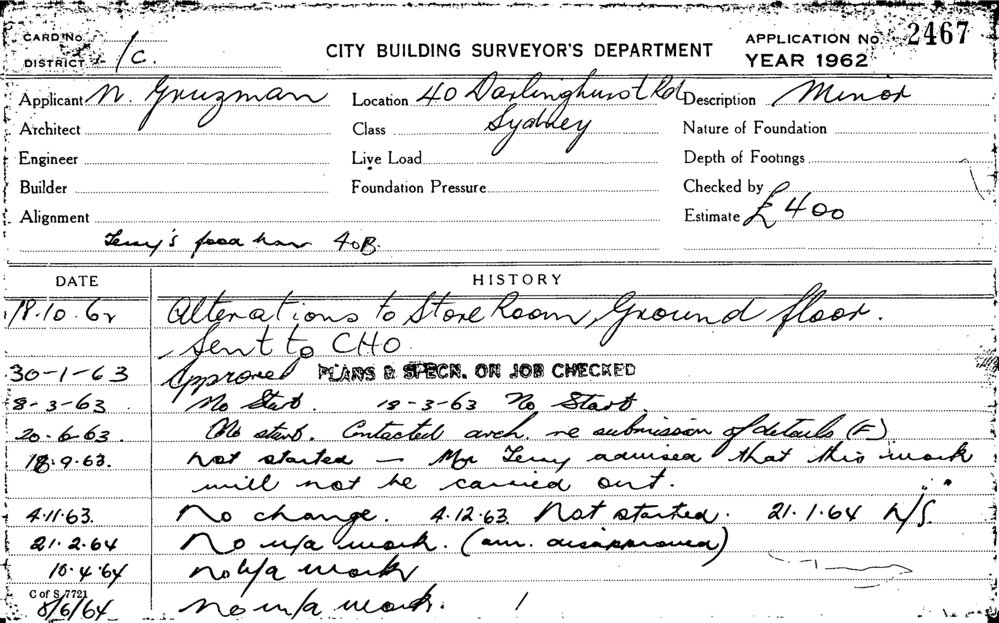 CARD No.
DISTRICT 1c.
CITY BUILDING SURVEYOR'S DEPARTMENT
APPLICATION No. 2467
YEAR 1962
Applicant N. Gruzman Location 40 Darlinghurst Rd Description Minor
Architect Class Sydney Nature of Foundation
Engineer Live Load Depth of Footings
Builder Foundation Pressure Checked by
Alignment Estimate £400
Terry's food 40B.
DATE HISTORY
18.10.62 Alterations to Store Room, Ground floor.
Sent to CHO.
30-1-63 Approved PLANS & SPECN. ON JOB CHECKED
8-3-63 No Start. 18-3-63 No Start.
20.6.63. No start. Contacted arch. re submission of details (F)
18.9.63. Not started — Mr Terry advised that this work
will not be carried out.
4.11.63. No change. 4.12.63. Not started. 21.1.64 N/S.
21.2.64 No u/a work. (am. disapproved)
10.4.64 No u/a work
C of S 7721
8/6/64 No u/a work.